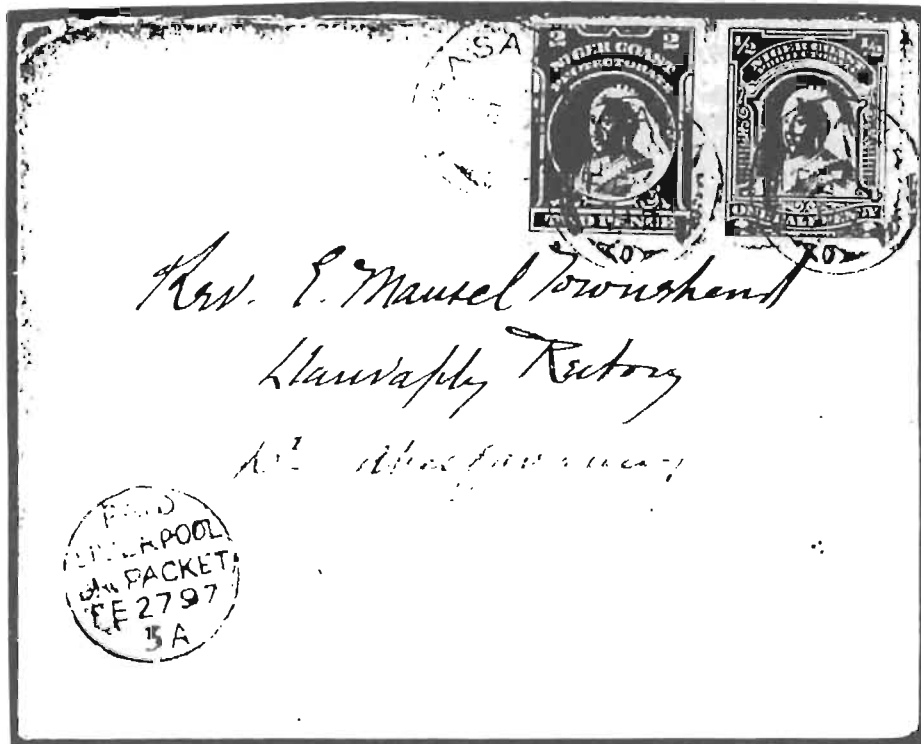 2 2
NIGER COAST
PROTECTORATE
TWO PENCE
½ ½
NIGER COAST
PROTECTORATE
ONE HALF PENNY
Rev. E. Mansel Townshend
Llanvapley Rectory
Nr Abergavenny
PAID
LIVERPOOL
PACKET
FE 27 97
5 A